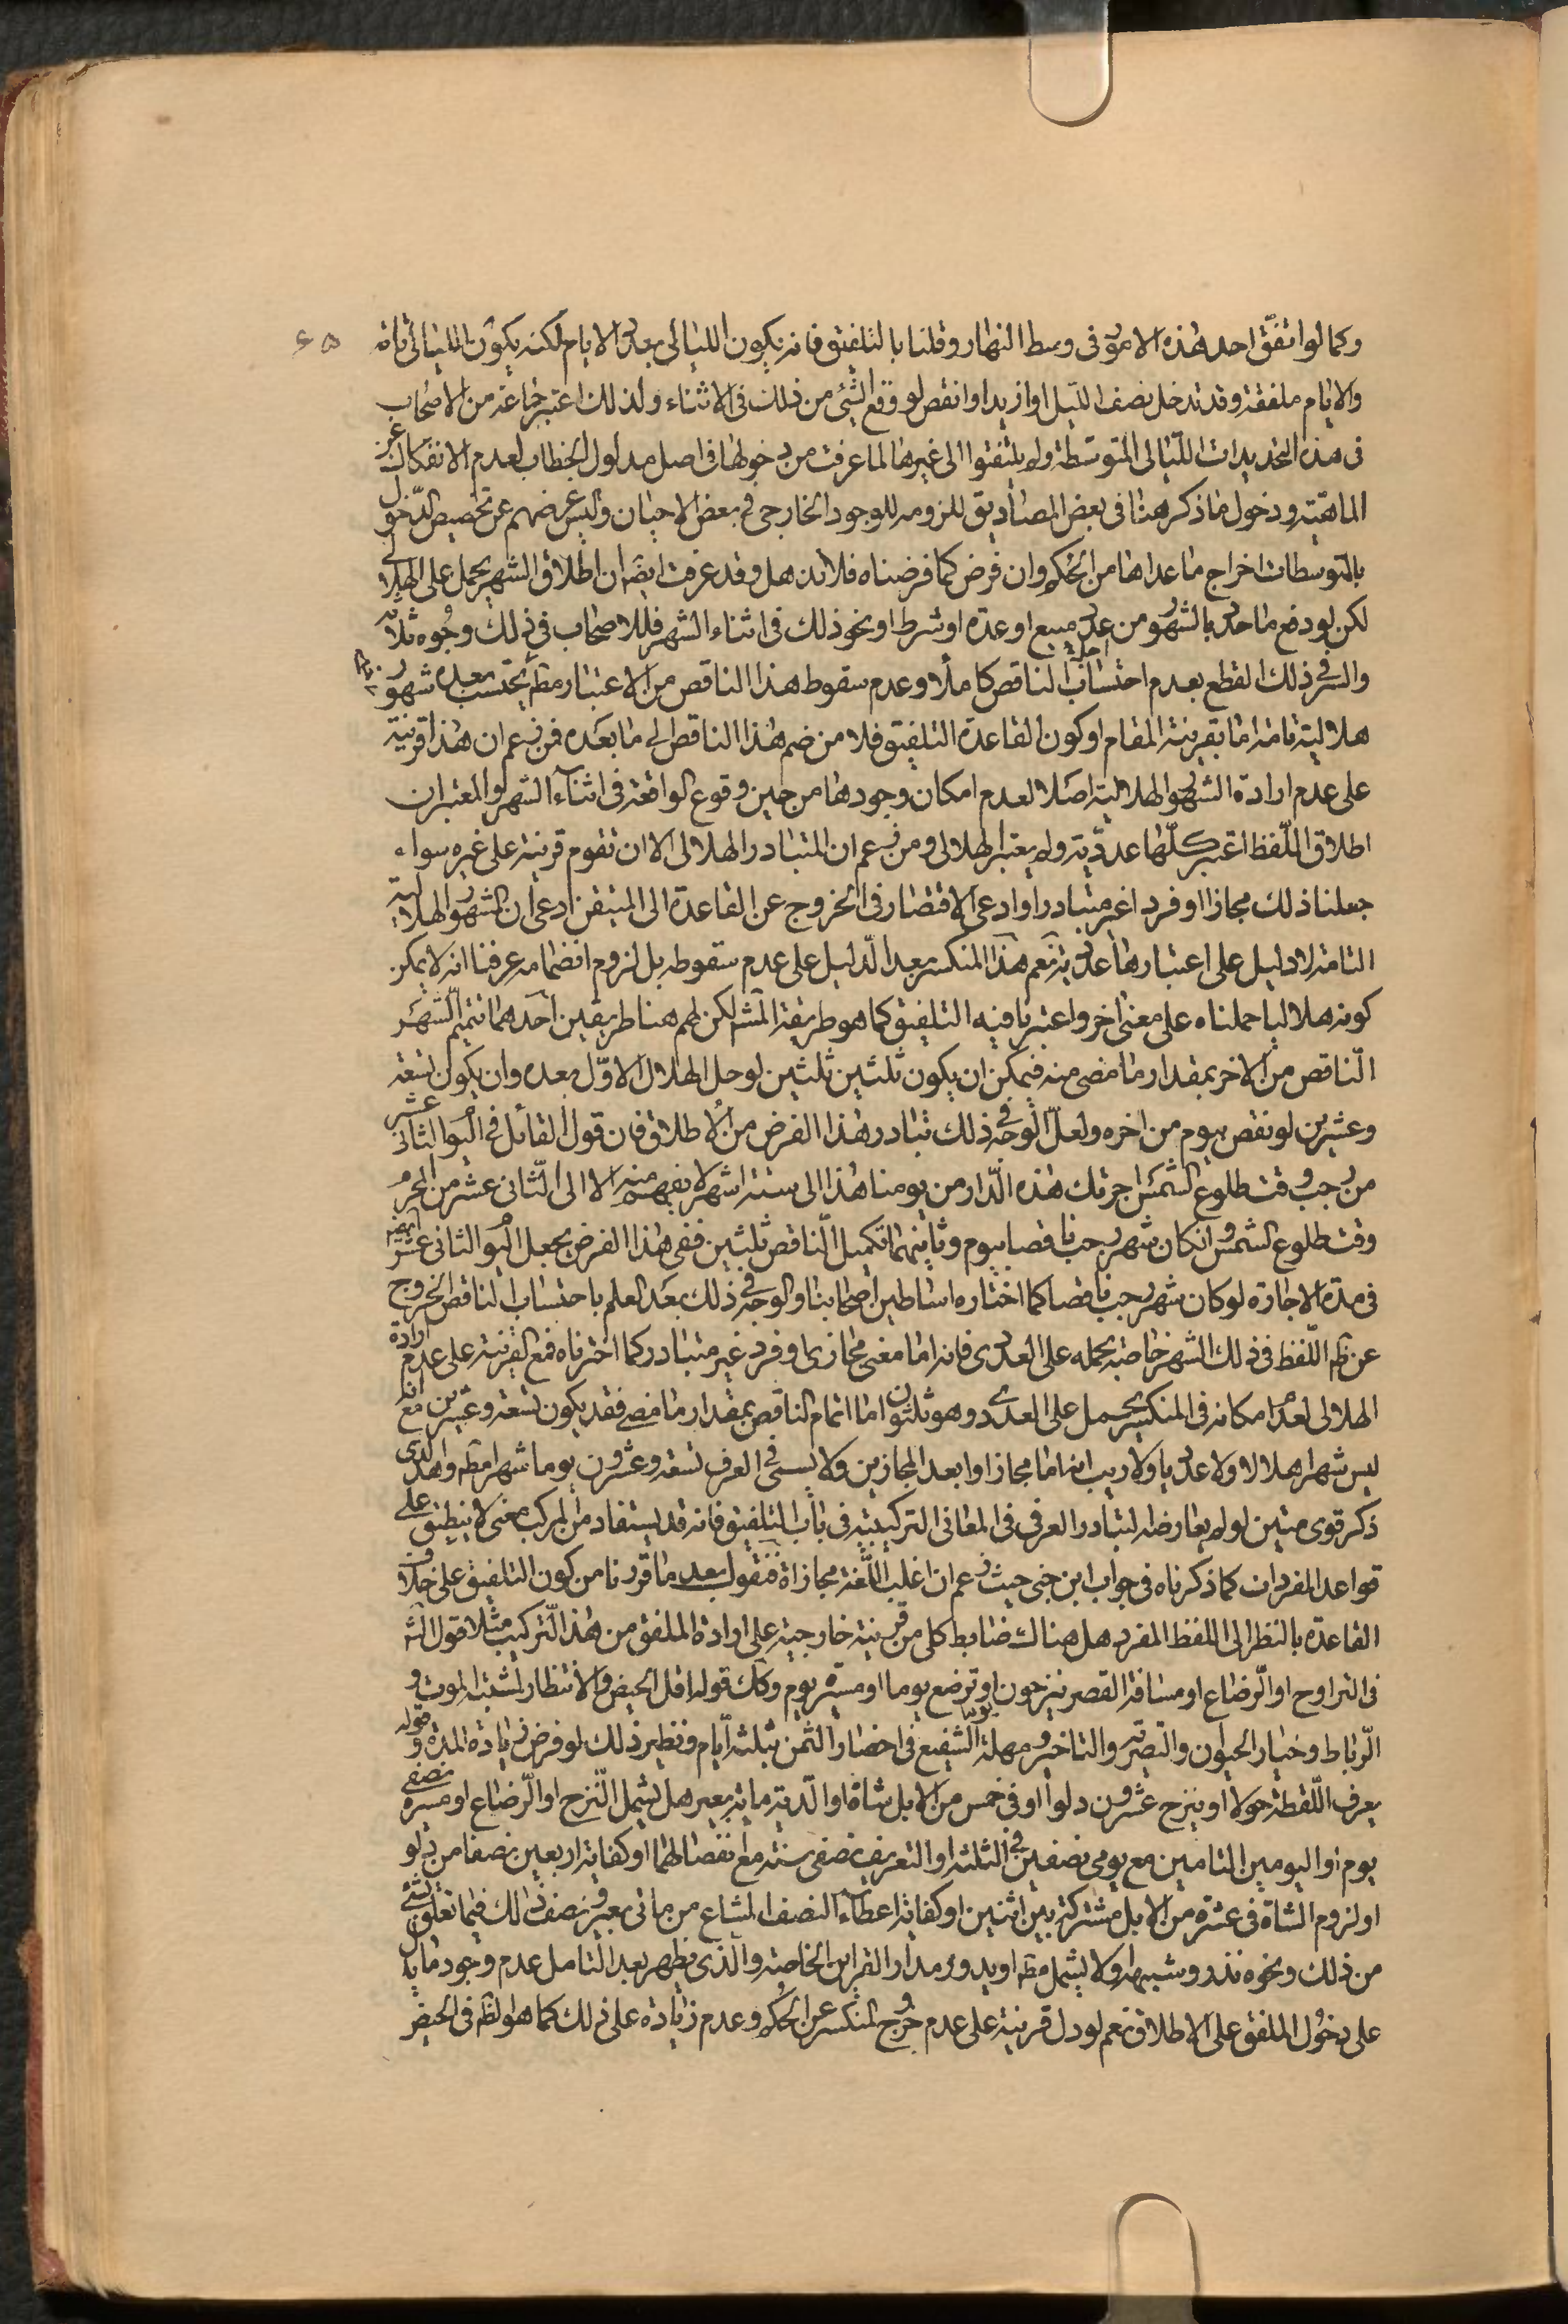 وكما لو اتفق احد هذه الامور فى وسط النهار وقلنا بالتلفيق فانه يكون الليالى بعدد الايام لكنه يكون الليالى تامة
٤٥
والايام ملفقة وقد تدخل نصف الليل او ازيد او انقص لو وقع الشئ من ذلك فى الاثناء ولذلك اعتبر جماعة من الاصحاب
فى هذه التحديدات الليالى المتوسطة ولم يلتفتوا الى غيرها لما عرفت من دخولها فى اصل مدلول الخطاب لعدم الانفكاك عن
الماهية ودخول ما ذكر هنا فى بعض المصاديق للزومه للوجود الخارجى فى بعض الاحيان وليس غرضهم عن تخصيص الدخول
بالمتوسطات اخراج ما عداها من الحكم وان فرض كما فرضناه فلا تذهل وقد عرفت ايضا ان اطلاق الشهر يحمل على الهلالى
لكن لو دفع ما حد بالشهور من عدة مبيع او عدة او شرط او نحو ذلك فى اثناء الشهر فللاصحاب فى ذلك وجوه ثلاثة
والسر فى ذلك القطع بعدم احتساب الناقص كاملا وعدم سقوط هذا الناقص من الاعتبار مطم يحتسب بعده شهور
هلالية تامة اما بقرينة المقام او كون القاعدة التلفيق فلا من ضم هذا الناقص الى ما بعده فمن زعم ان هذا قرينة
على عدم ارادة الشهور الهلالية اصلا لعدم امكان وجودها من حين وقوع الواقعة فى اثناء الشهر والمعتبر ان
اطلاق اللفظ اعتبر كلها عددية ولم يعتبر الهلالى ومن زعم ان المتبادر الهلالى الا ان تقوم قرينة على غيره سواء
جعلنا ذلك مجازا او فردا غير متبادر او ادعى الاقتصار فى الخروج عن القاعدة الى المتيقن ادعى ان الشهور الهلالية
التامة لا دليل على اعتبارها عددية نعم هذا المنكسر بعد الدليل على عدم سقوطه بل لزوم انضمامه عرفنا انه لا يمكن
كونه هلاليا حملناه على معنى اخر واعتبرنا فيه التلفيق كما هو طريقة المشهم لكن لهم هنا طريقين احدهما تتميم الشهر
الناقص من الاخر بمقدار ما مضى منه فيمكن ان يكون ثلثين ثلثين لو حل الهلال الاول بعده وان يكون تسعة
وعشرين لو نقص بيوم من اخره ولعل الوجه فى ذلك تبادر هذا الفرض من الاطلاق فان قول القائل فى اليوم الثانى عشر
من رجب وقت طلوع الشمس اجرتك هذه الدار من يومنا هذا الى ستة اشهر لا يفهم منه الا الى الثانى عشر من المحرم
وقت طلوع الشمس وانكان شهر رجب ناقصا بيوم وثانيهما تكميل الناقص ثلثين ففى هذا الفرض يجعل اليوم الثانى عشر ايضا
فى مدة الاجارة لو كان شهر رجب ناقصا كما اختاره اساطين اصحابنا والوجه فى ذلك بعد العلم باحتساب الناقص الخروج
عن ظم اللفظ فى ذلك الشهر خاصة بحمله على العددى فانه اما معنى مجازى او فرد غير متبادر كما اخترناه فمع القرينة على عدم ارادة
الهلالى لعدم امكانه فى المنكسر يحمل على العددى وهو ثلثون اما اتمام الناقص بمقدار ما مضى فقد يكون تسعة وعشرين مع انه
ليس شهرا هلالا ولا عدديا ولا ريب انه اما مجاز او ابعد المجازين ولا يسمى فى العرف تسعة وعشرون يوما شهرا مطم وهذا الذى
ذكر قوى متين لو لم يعارضه التبادر العرفى فى المعانى التركيبية فى باب التلفيق فانه قد يستفاد من المركب معنى لا ينطبق على
قواعد المفردات كما ذكرناه فى جواب ابن جنى حيث زعم ان اغلب اللغة مجازاة فنقول بعد ما قررنا من كون التلفيق على خلاف
القاعدة بالنظر الى اللفظ المفرد هل هناك ضابط كلى من قرينة خارجية على ارادة الملفق من هذا التركيب مثلا قول الشم
فى التراوح او الرضاع او مسافة القصر ينزحون او ترضع يوما او مسيرة يوم وكك قوله اقل الحيض والانتظار لمشتبه الموت و
الرباط وخيار الحيوان والتصرية والتاخير ومهلة الشفيع فى احضار الثمن بثلثة ايام ونظير ذلك لو فرض زيادة المدة وقوله
يعرف اللقطة حولا او ينزح عشرون دلوا او فى خمس من الابل شاة او الدية مائة بعير هل يشمل النزح او الرضاع او مسيرة نصفى
يوم او اليومين التامين مع يومى نصفين فى الثلثة او التعريف نصفى سنة مع انفصالهما او كفاية اربعين نصفا من دلو
او لزوم الشاة فى عشرة من الابل مشتركة بين اثنين او كفاية اعطاء النصف المشاع من مائتى بعير ونصف ذلك فيما تعلق بشئ
من ذلك ونحوه نذر وشبهه او لا يشمل مطم او يدور مدار القراين الخاصة والذى يظهر بعد التامل عدم وجود ما يدل
على دخول الملفق على الاطلاق نعم لو دل قرينة على عدم خروج المنكسر عن الحكم وعدم زيادة على ذلك كما هو الظم فى الحيض